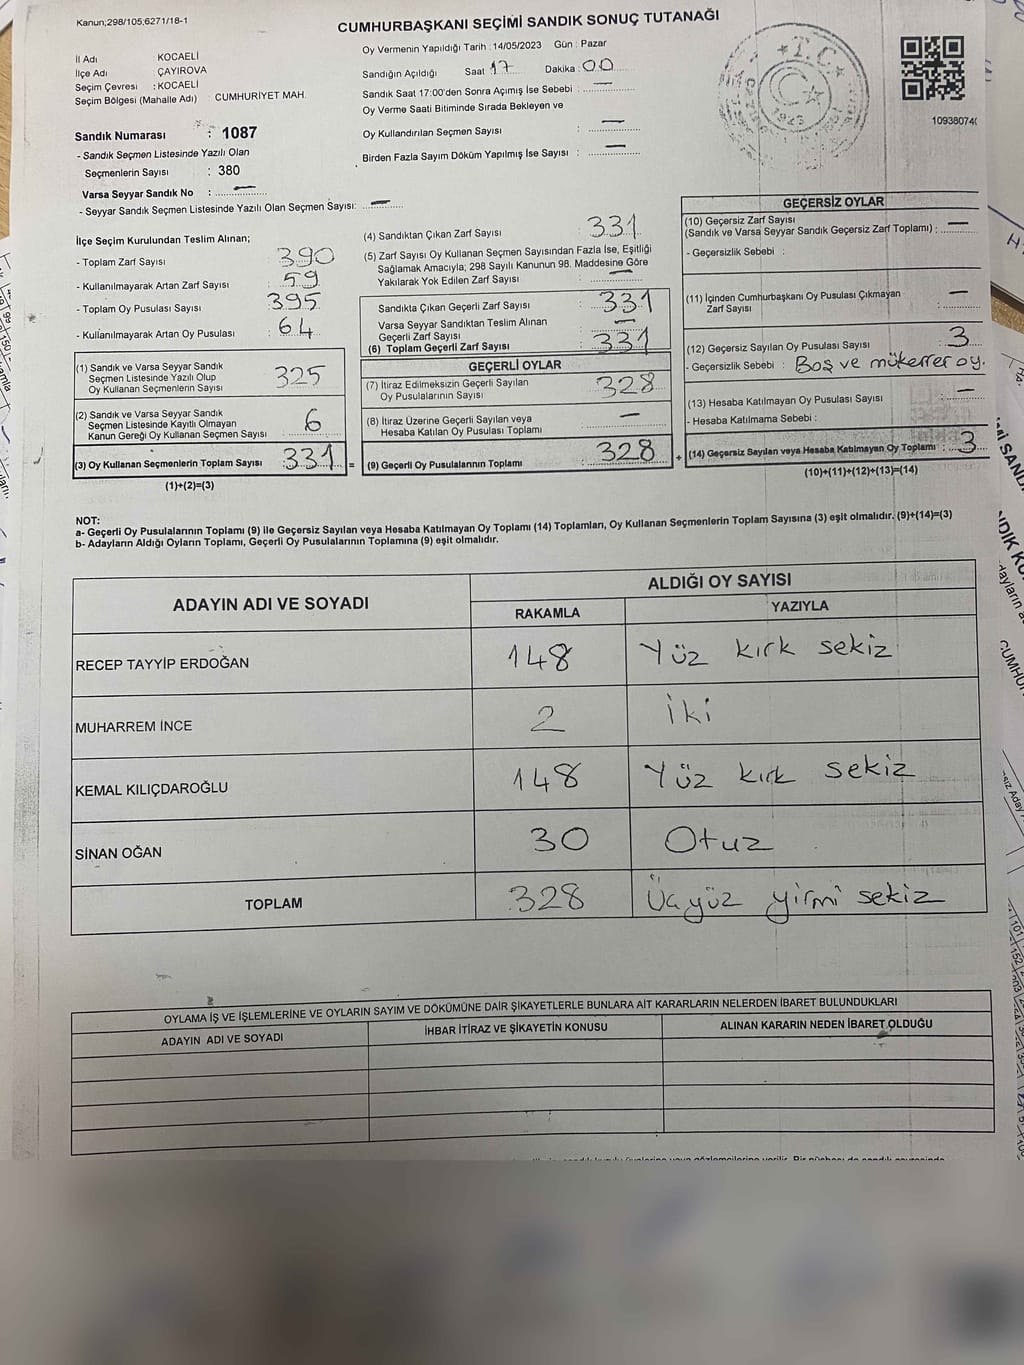 Kanun;298/105,6271/18-1
CUMHURBAŞKANI SEÇİMİ SANDIK SONUÇ TUTANAĞI
İl Adı KOCAELİ
İlçe Adı ÇAYIROVA
Seçim Çevresi : KOCAELİ
Seçim Bölgesi (Mahalle Adı) : CUMHURİYET MAH.
Sandık Numarası : 1087
- Sandık Seçmen Listesinde Yazılı Olan
Seçmenlerin Sayısı : 380
Varsa Seyyar Sandık No : —
- Seyyar Sandık Seçmen Listesinde Yazılı Olan Seçmen Sayısı: —
Oy Vermenin Yapıldığı Tarih : 14/05/2023 Gün : Pazar
Sandığın Açıldığı Saat 17 Dakika : 00
Sandık Saat 17:00'den Sonra Açımış İse Sebebi : —
Oy Verme Saati Bitiminde Sırada Bekleyen ve
Oy Kullandırılan Seçmen Sayısı : —
Birden Fazla Sayım Döküm Yapılmış İse Sayısı : —
T.C.
1923
10938074
İlçe Seçim Kurulundan Teslim Alınan;
- Toplam Zarf Sayısı : 390
- Kullanılmayarak Artan Zarf Sayısı : 59
- Toplam Oy Pusulası Sayısı : 395
- Kullanılmayarak Artan Oy Pusulası : 64
(1) Sandık ve Varsa Seyyar Sandık
Seçmen Listesinde Yazılı Olup
Oy Kullanan Seçmenlerin Sayısı : 325
(2) Sandık ve Varsa Seyyar Sandık
Seçmen Listesinde Kayıtlı Olmayan
Kanun Gereği Oy Kullanan Seçmen Sayısı : 6
(3) Oy Kullanan Seçmenlerin Toplam Sayısı : 331 =
(1)+(2)=(3)
(4) Sandıktan Çıkan Zarf Sayısı : 331
(5) Zarf Sayısı Oy Kullanan Seçmen Sayısından Fazla İse, Eşitliği
Sağlamak Amacıyla; 298 Sayılı Kanunun 98. Maddesine Göre
Yakılarak Yok Edilen Zarf Sayısı : —
Sandıkta Çıkan Geçerli Zarf Sayısı : 331
Varsa Seyyar Sandıktan Teslim Alınan
Geçerli Zarf Sayısı : —
(6) Toplam Geçerli Zarf Sayısı : 331
GEÇERLİ OYLAR
(7) İtiraz Edilmeksizin Geçerli Sayılan
Oy Pusulasının Sayısı : 328
(8) İtiraz Üzerine Geçerli Sayılan veya
Hesaba Katılan Oy Pusulası Toplamı : —
(9) Geçerli Oy Pusulalarının Toplamı : 328 +
GEÇERSİZ OYLAR
(10) Geçersiz Zarf Sayısı
(Sandık ve Varsa Seyyar Sandık Geçersiz Zarf Toplamı) : —
- Geçersizlik Sebebi :
(11) İçinden Cumhurbaşkanı Oy Pusulası Çıkmayan
Zarf Sayısı : —
(12) Geçersiz Sayılan Oy Pusulası Sayısı : 3
- Geçersizlik Sebebi : Boş ve mükerrer oy.
(13) Hesaba Katılmayan Oy Pusulası Sayısı : —
- Hesaba Katılmama Sebebi :
(14) Geçersiz Sayılan veya Hesaba Katılmayan Oy Toplamı : 3
(10)+(11)+(12)+(13)=(14)
NOT:
a- Geçerli Oy Pusulalarının Toplamı (9) ile Geçersiz Sayılan veya Hesaba Katılmayan Oy Toplamı (14) Toplamları, Oy Kullanan Seçmenlerin Toplam Sayısına (3) eşit olmalıdır. (9)+(14)=(3)
b- Adayların Aldığı Oyların Toplamı, Geçerli Oy Pusulalarının Toplamına (9) eşit olmalıdır.
ADAYIN ADI VE SOYADI ALDIĞI OY SAYISI
RAKAMLA YAZIYLA
RECEP TAYYİP ERDOĞAN 148 Yüz kırk sekiz
MUHARREM İNCE 2 İki
KEMAL KILIÇDAROĞLU 148 Yüz kırk sekiz
SİNAN OĞAN 30 Otuz
TOPLAM 328 Üçyüz yirmi sekiz
OYLAMA İŞ VE İŞLEMLERİNE VE OYLARIN SAYIM VE DÖKÜMÜNE DAİR ŞİKAYETLERLE BUNLARA AİT KARARLARIN NELERDEN İBARET BULUNDUKLARI
ADAYIN ADI VE SOYADI İHBAR İTİRAZ VE ŞİKAYETİN KONUSU ALINAN KARARIN NEDEN İBARET OLDUĞU